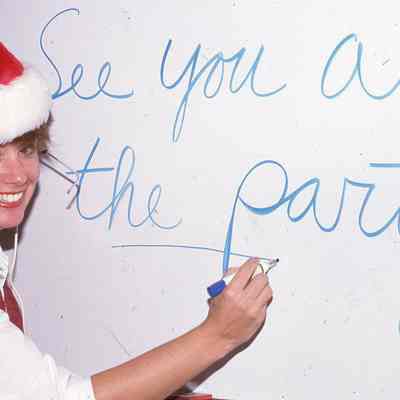 See You a
the part